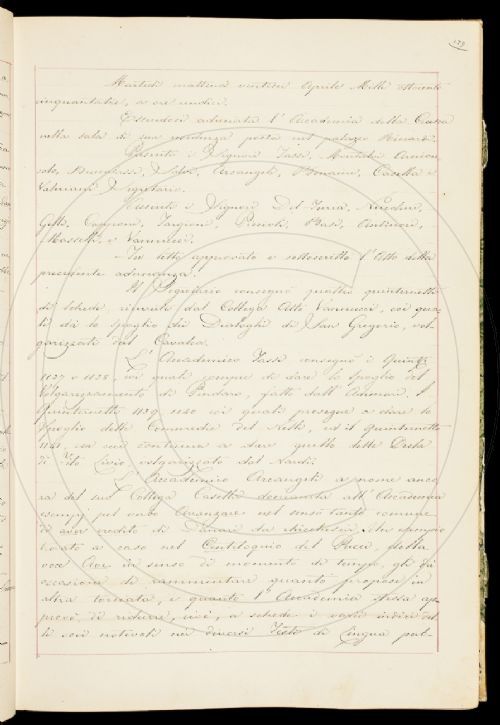 179
Martedì mattina ventisei Aprile Mille ottocento
cinquantatre, a ore undici.
Essendosi adunata l'Accademia della Crusca
nella sala di sua residenza posta nel palazzo Riccardi.
Presenti i Signori Tassi, Montalvi Arcicon-
solo, Brunacci, Salvi, Arcangeli, Bonaini, Casella e
Valeriani Segretario.
Assenti i Signori Del Furia, Niccolini,
Gelli, Capponi, Targioni, Pieroli, Basi, Antinori,
Masselli, e Vannucci.
Fu letto approvato e sottoscritto l'Atto della
precedente adunanza.
Il Segretario consegnò quattro quinternetti
di schede, inviate dal Collega Atto Vannucci, coi qua-
li dà lo spoglio dei Dialoghi di San Gregorio, vol-
garizzati dal Cavalca.
L'Accademico Tassi consegnò i Quint.
1137 e 1138, coi quali compie di dare lo spoglio del
Volgarizzamento di Pindaro, fatto dall'Adimari, i
Quinternetti 1139 1140 coi quali prosegue a dare lo
spoglio delle Commedie del Nelli, ed il Quinternetto
1141, in cui continua a dare quello delle Deche
di Tito Livio, volgarizzate dal Nardi.
L'Accademico Arcangeli a nome anco-
ra del suo Collega Casella domanda all'Accademia
esempj pel verbo Avanzare nel senso tanto comune
di aver credito di Danari da riscotersi. Un esempio
trovato a caso nel Centiloquio del Pucci, della
voce in senso di momento di tempo, gli dà
occasione di rammentare quanto propose in
altra tornata, e quanto l'Accademia stessa ap-
provò, di ridurre, cioè, a schede i varii indici del-
le voci notevoli nei diversi Testi di Lingua pub-